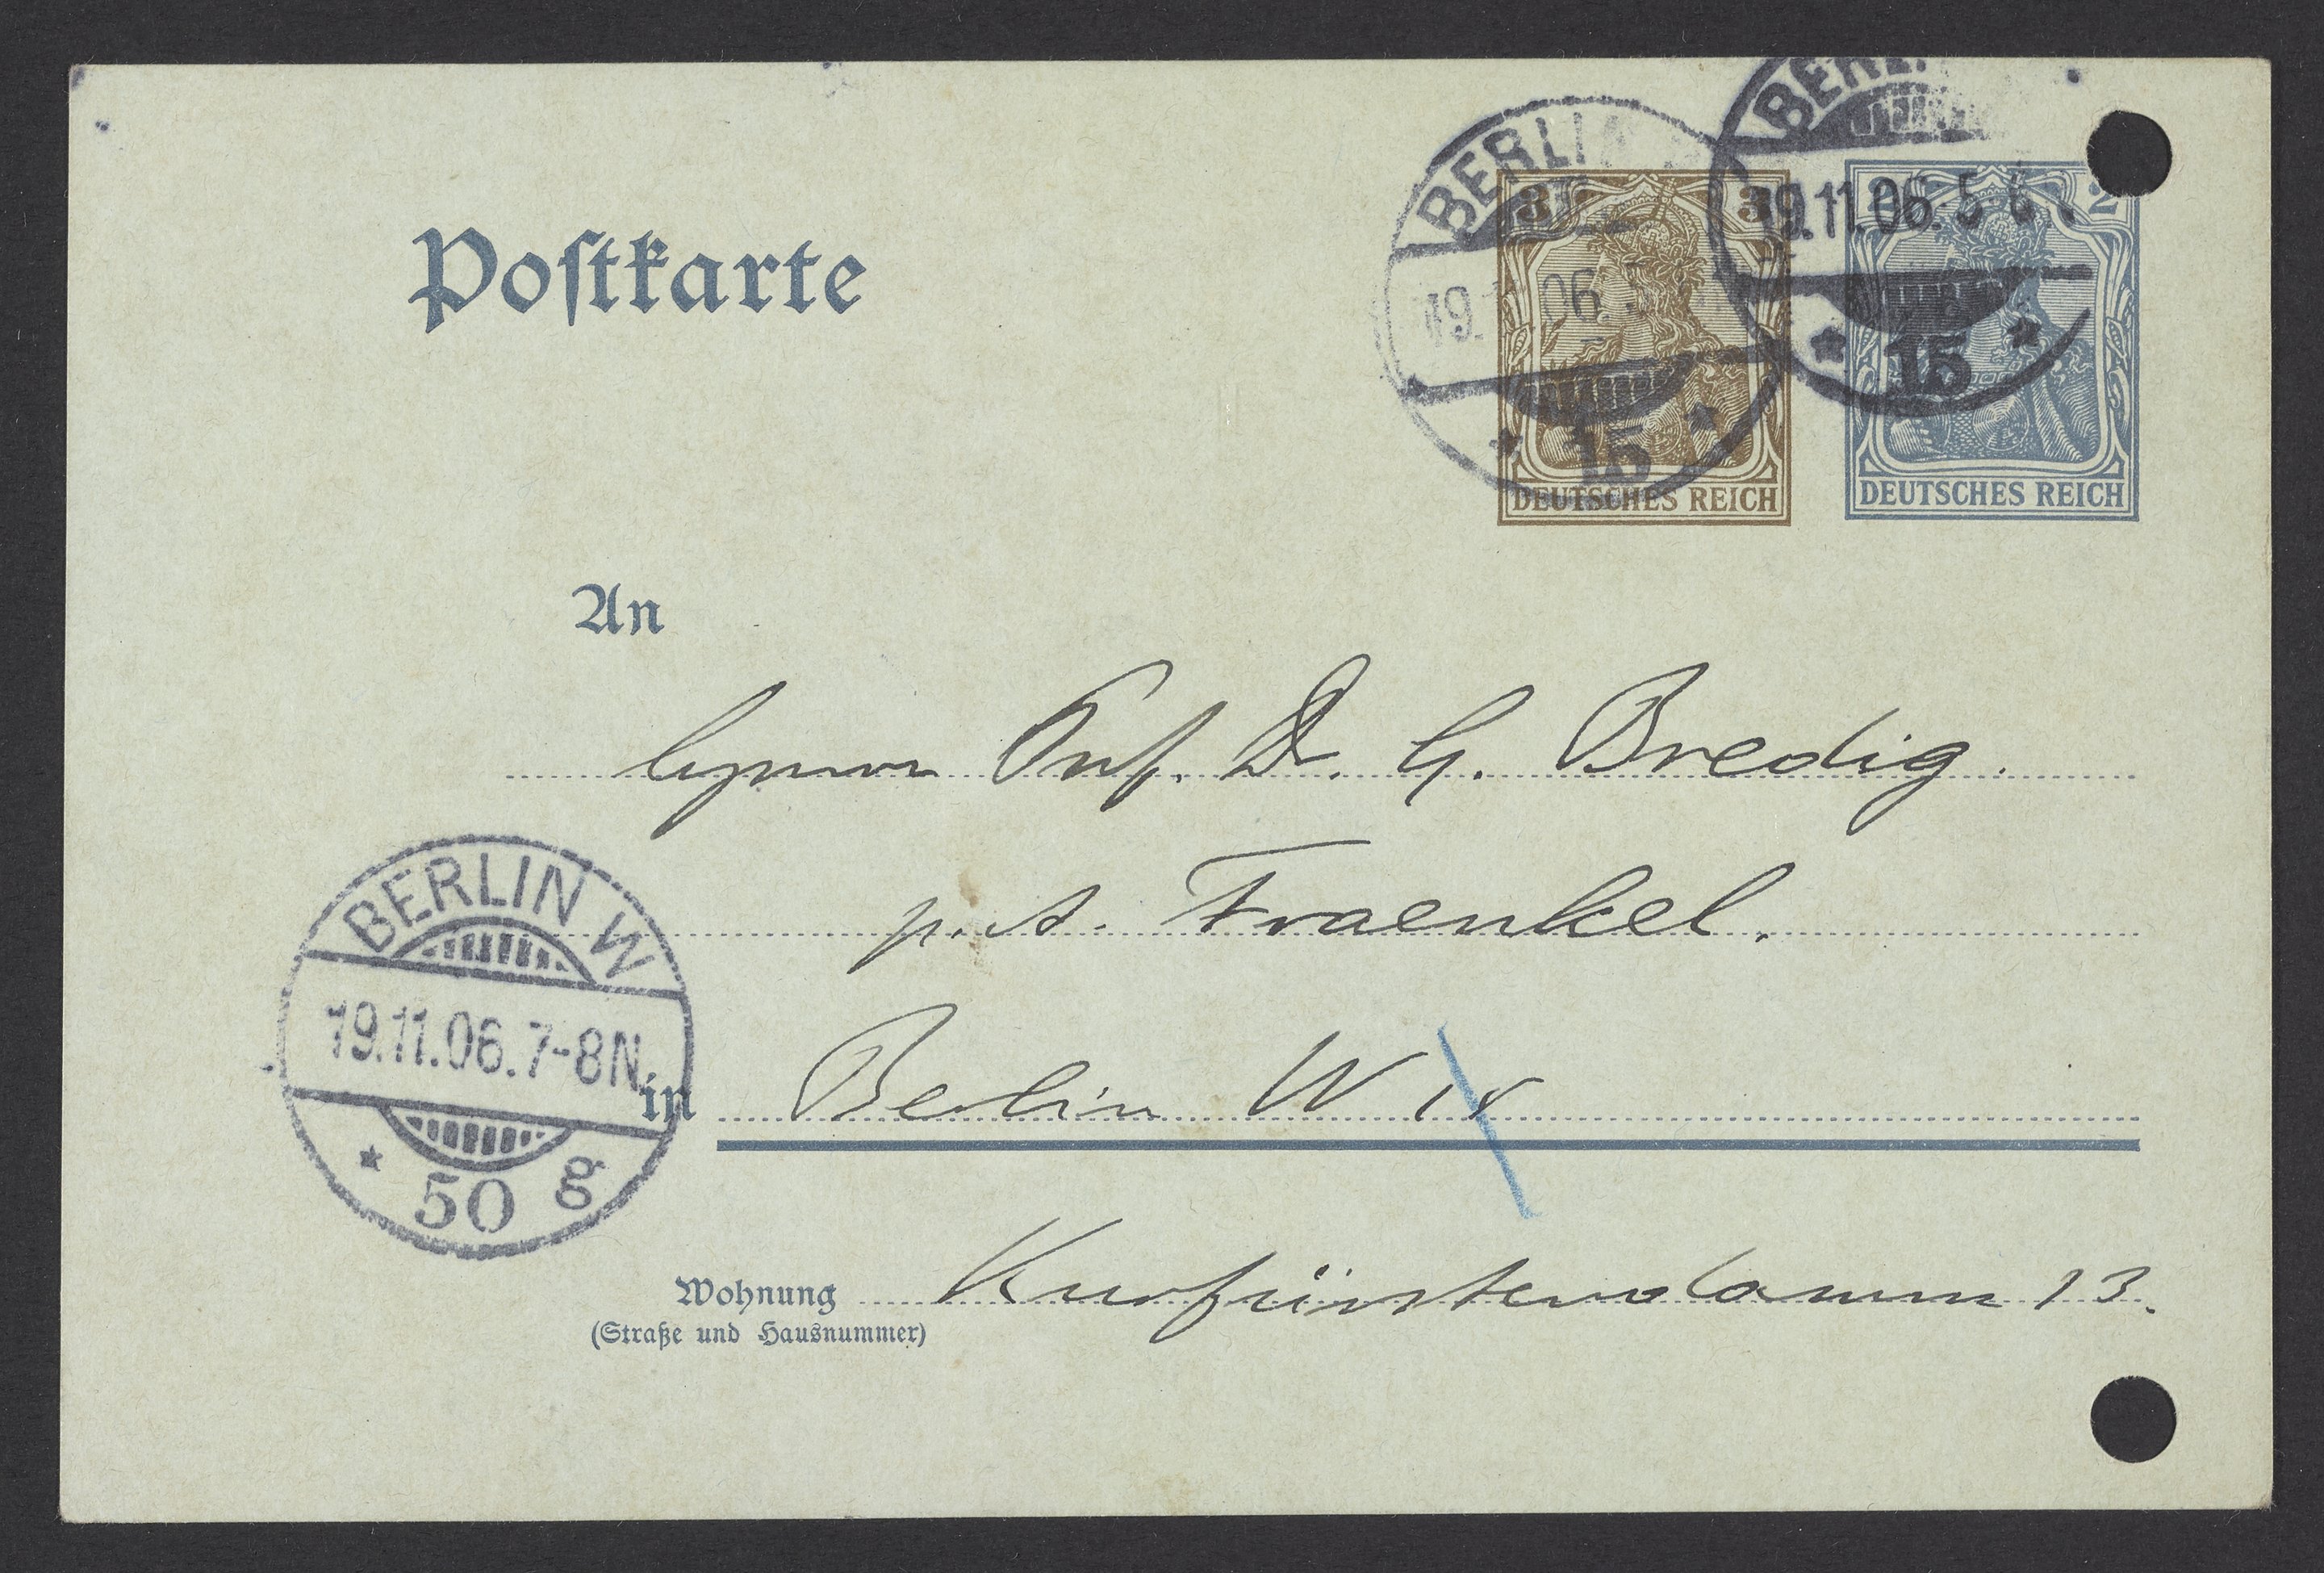 BERLIN
19.11.06.5-6
15
BERLI
19. 06.
15
3 3
DEUTSCHES REICH
2
DEUTSCHES REICH
Postkarte
An
Herrn Prof. Dr. G. Bredig.
p. A. Fraenkel.
BERLIN W
19.11.06.7-8N.
* 50 g
in Berlin W
Wohnung Kurfürstendamm 13.
(Straße und Hausnummer)